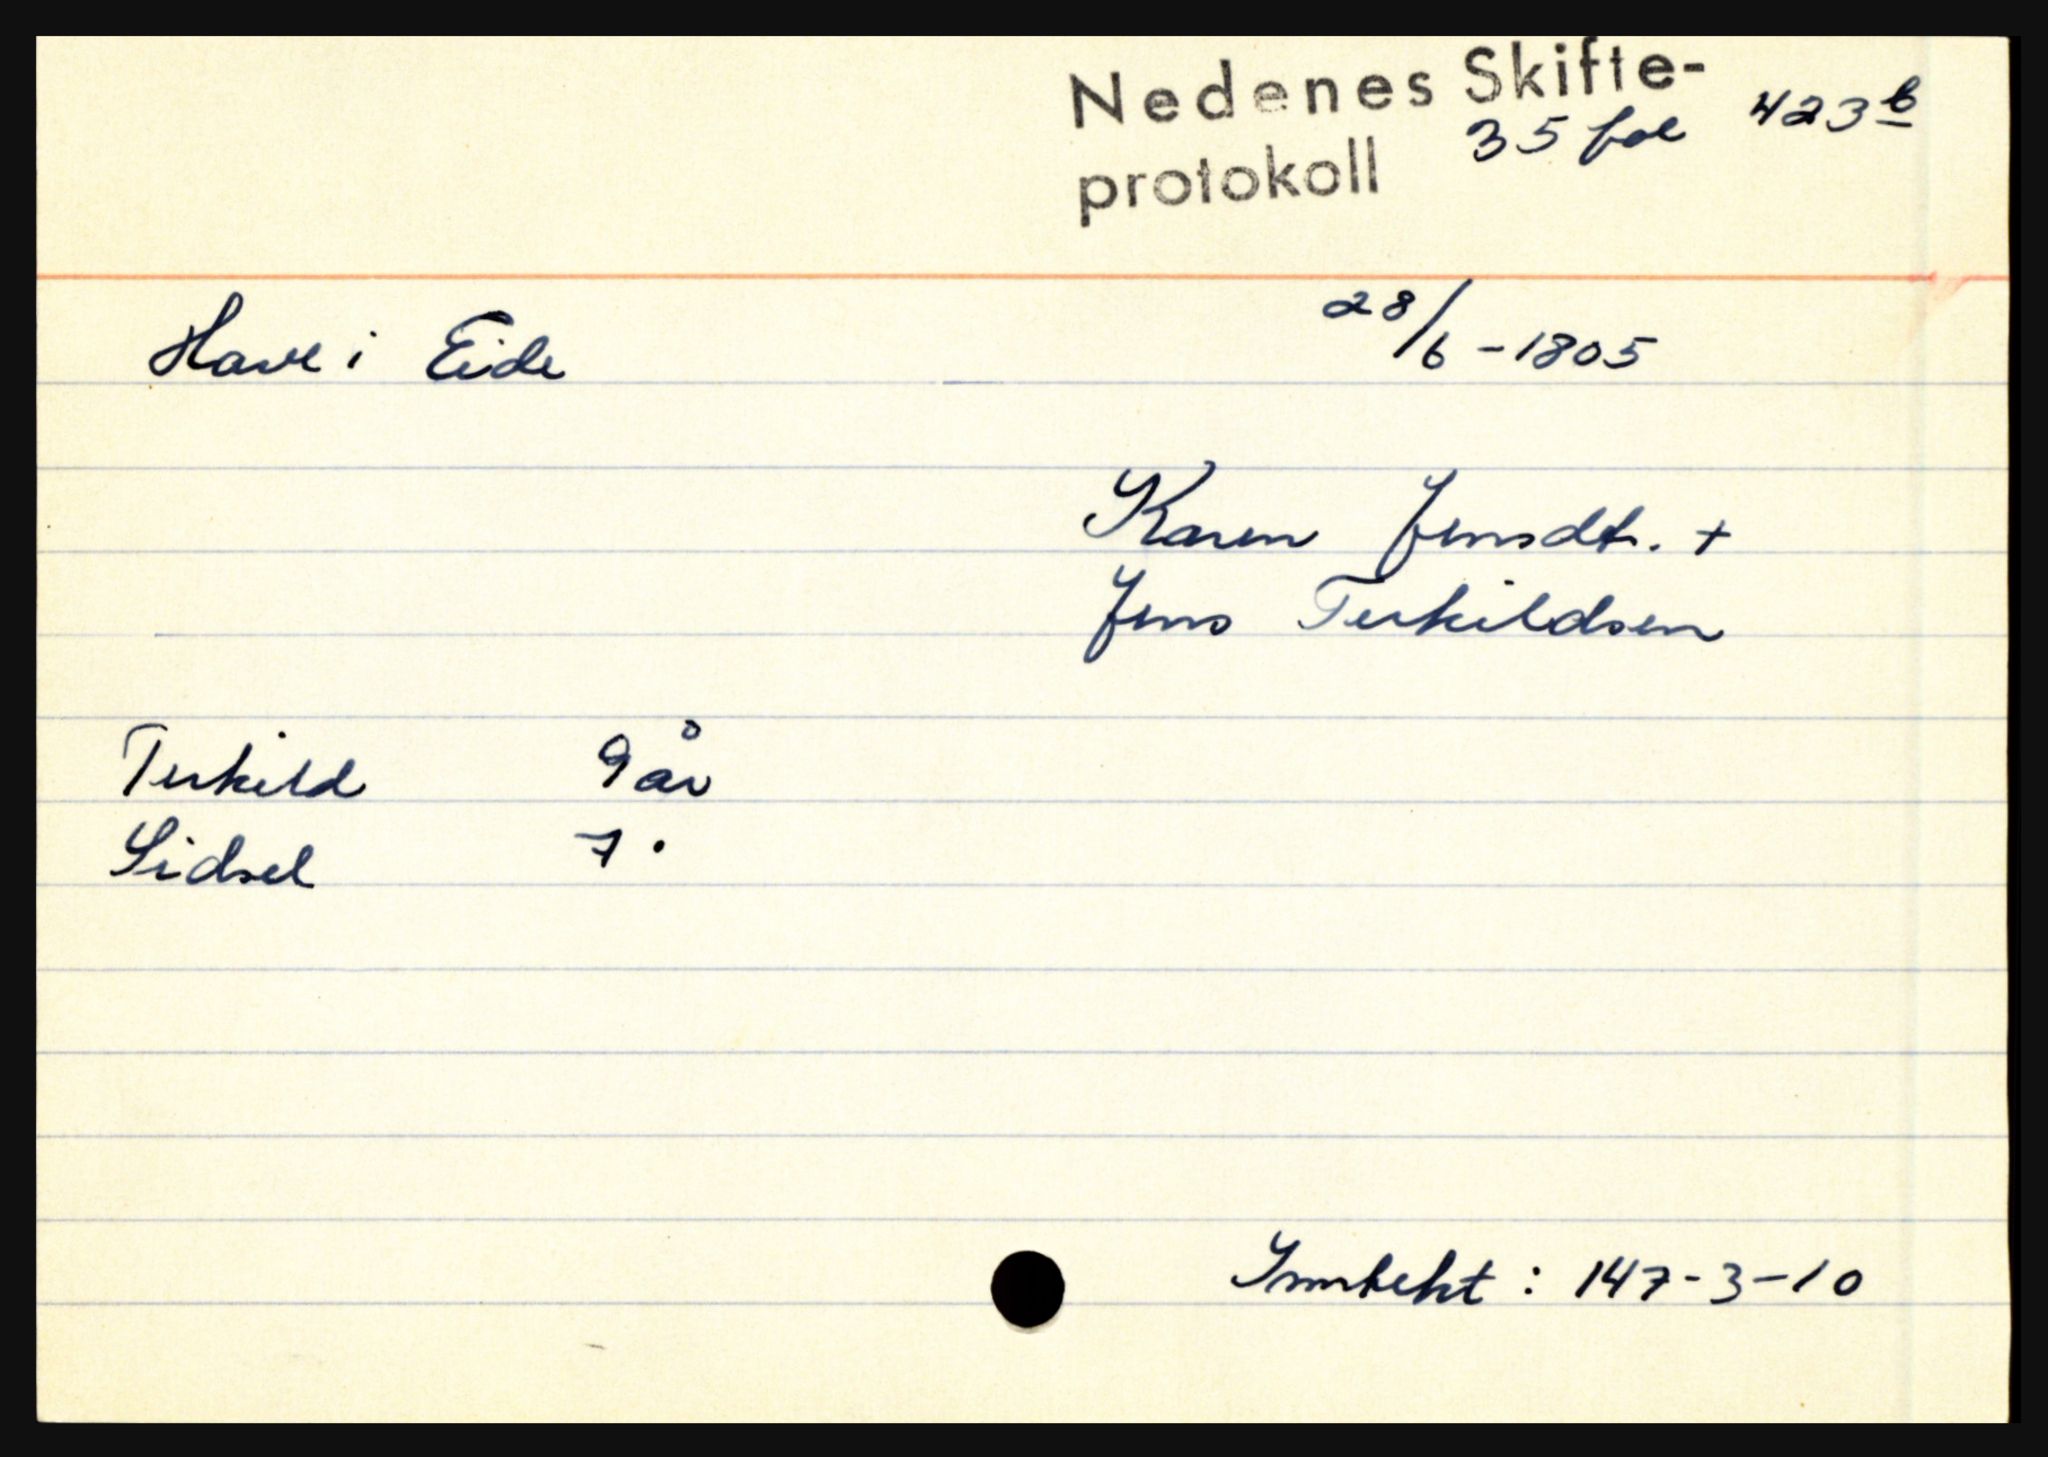 Nedenes Skifte-
protokoll 35 fol 423b
Have i Eide 28/6-1805
Karen Jensdtr. +
Jens Terkildsen
Terkild 9 år
Sidsel 7 "
Inntekt: 147-3-10